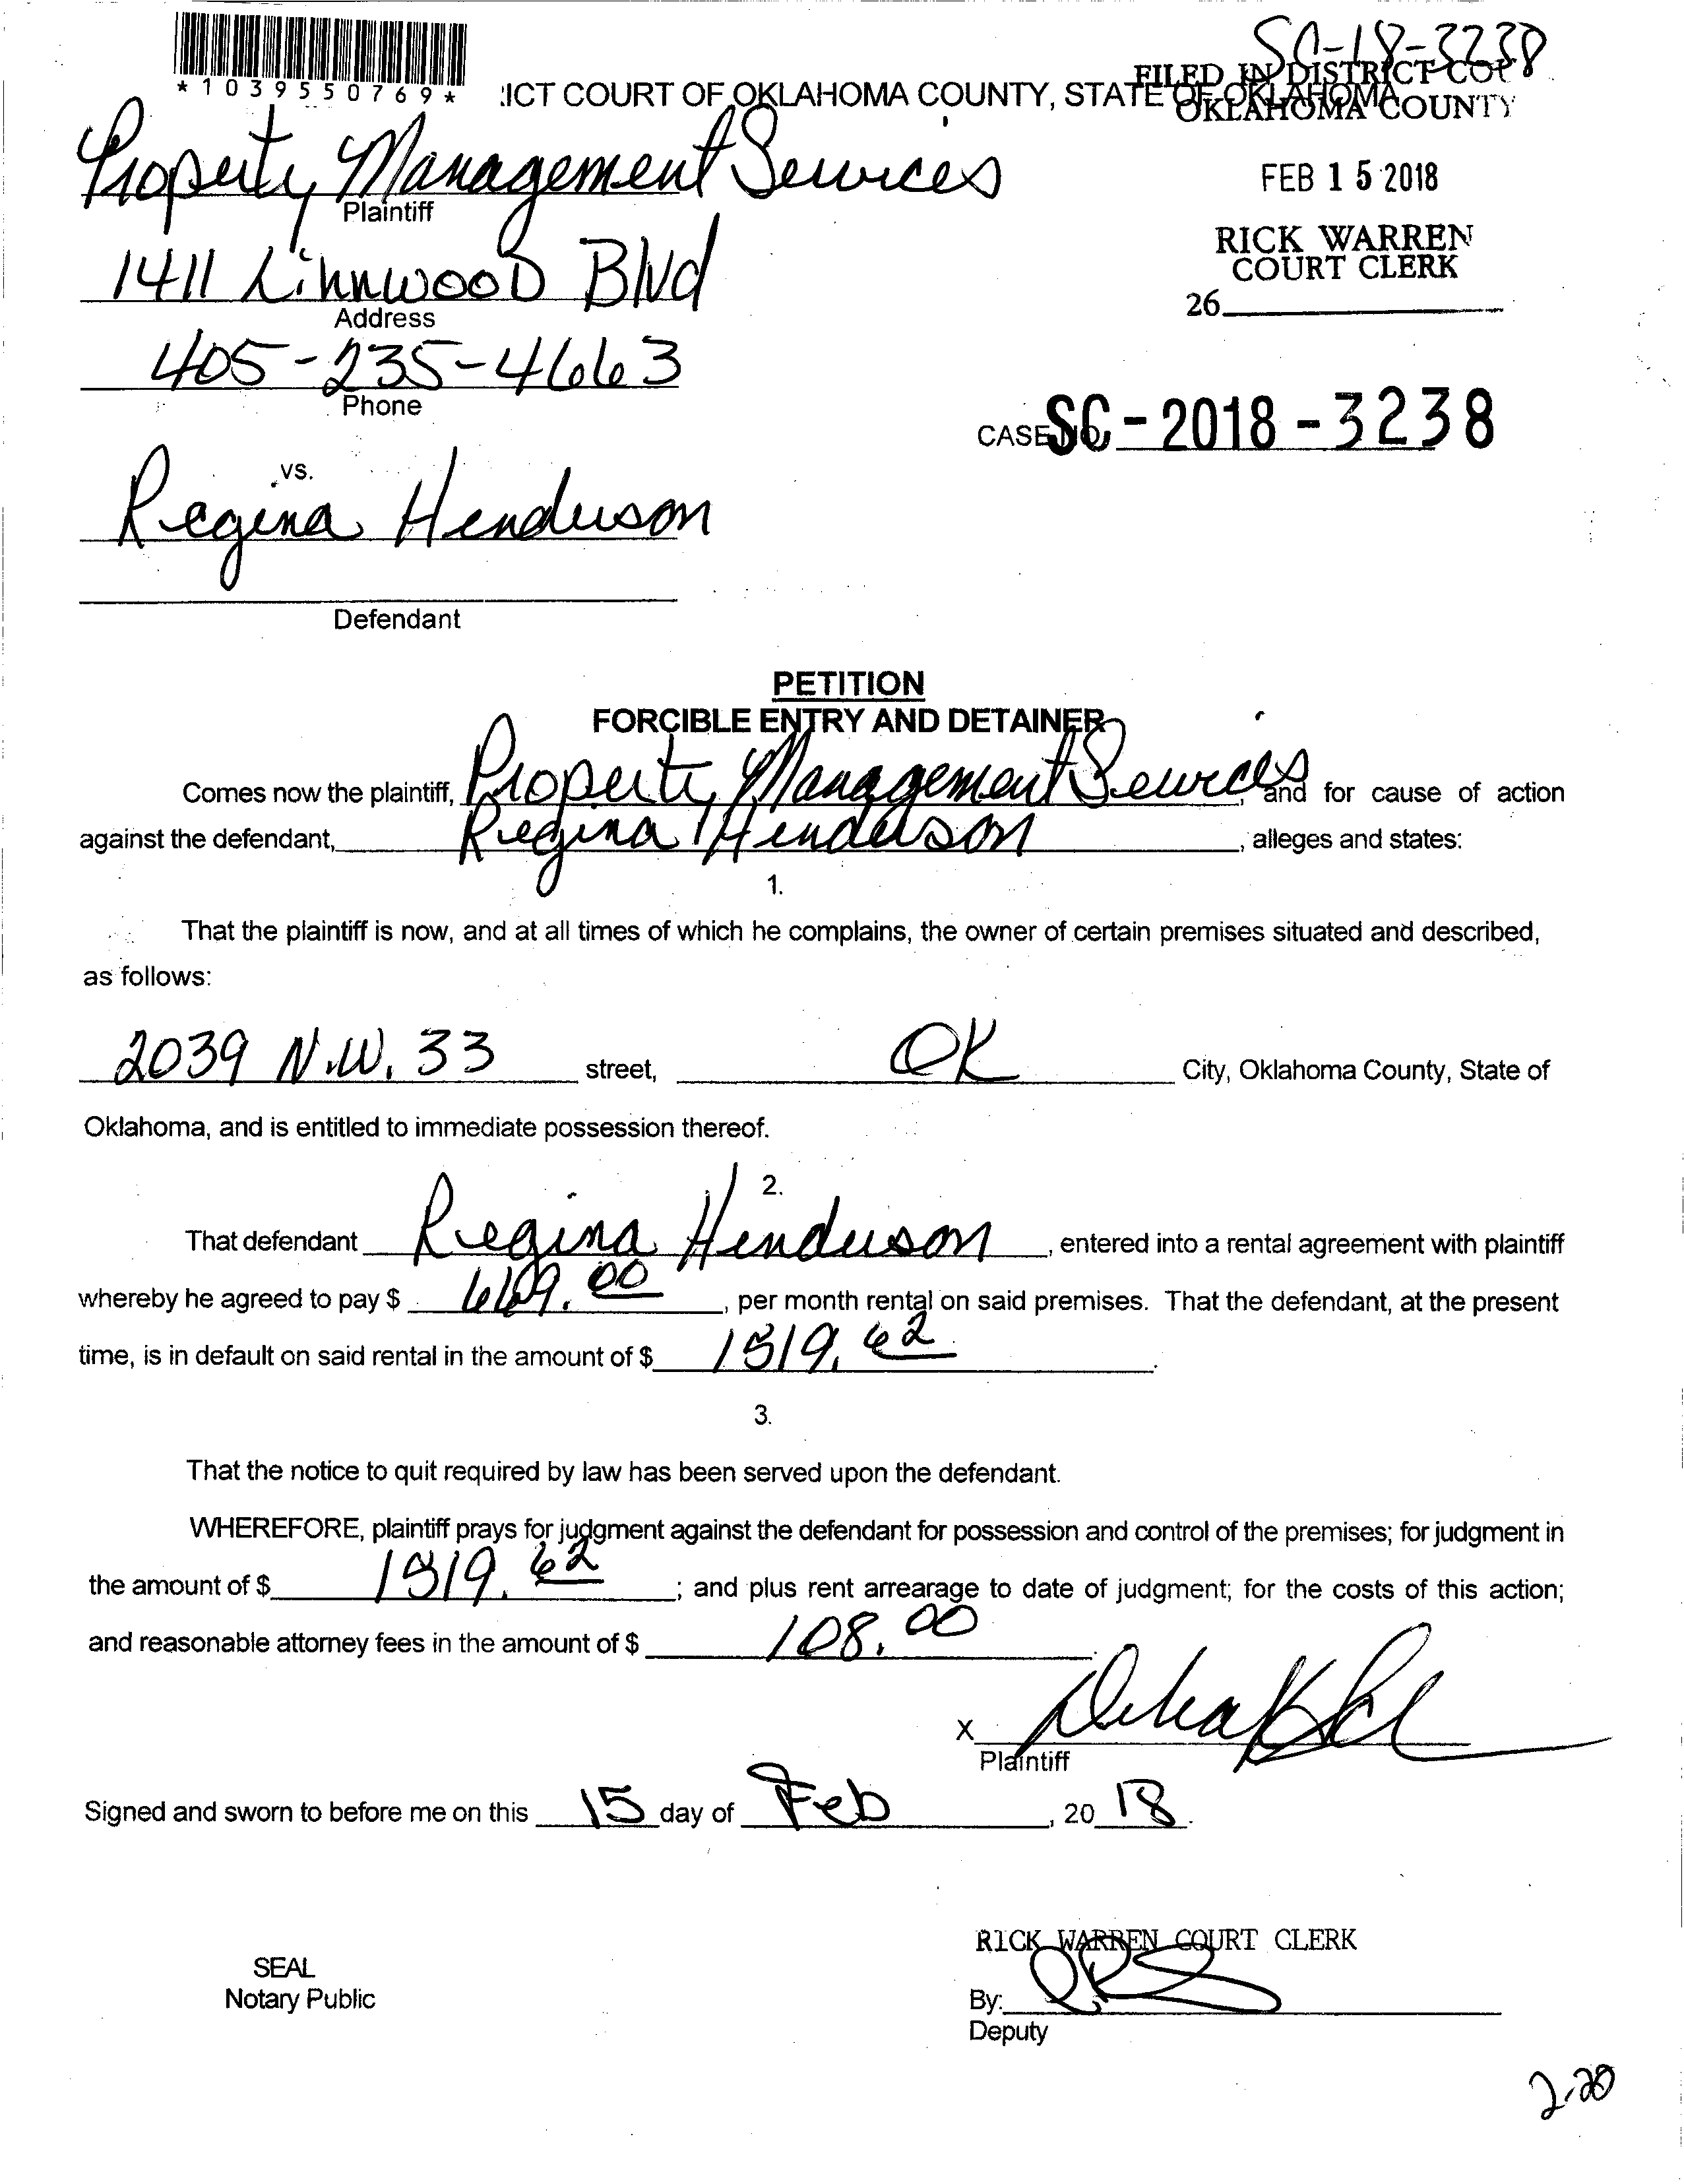 SC-18-3238
*1039550769*
ICT COURT OF OKLAHOMA COUNTY, STATE OF OKLAHOMA
FILED IN DISTRICT COURT
OKLAHOMA COUNTY
Property Management Services
Plaintiff
FEB 15 2018
RICK WARREN
COURT CLERK
1411 Linnwood Blvd
Address
26
405-235-4663
Phone
CASE NO. SC-2018-3238
vs.
Regina Henderson
Defendant
PETITION
FORCIBLE ENTRY AND DETAINER
Comes now the plaintiff, Property Management Services, and for cause of action
against the defendant, Regina Henderson, alleges and states:
1.
That the plaintiff is now, and at all times of which he complains, the owner of certain premises situated and described,
as follows:
2039 N.W. 33 street, OK City, Oklahoma County, State of
Oklahoma, and is entitled to immediate possession thereof.
2.
That defendant Regina Henderson, entered into a rental agreement with plaintiff
whereby he agreed to pay $ 669.00, per month rental on said premises. That the defendant, at the present
time, is in default on said rental in the amount of $ 1519.62.
3.
That the notice to quit required by law has been served upon the defendant.
WHEREFORE, plaintiff prays for judgment against the defendant for possession and control of the premises; for judgment in
the amount of $ 1519.62; and plus rent arrearage to date of judgment; for the costs of this action;
and reasonable attorney fees in the amount of $ 108.00.
X
Plaintiff
Signed and sworn to before me on this 15 day of Feb, 2018.
RICK WARREN COURT CLERK
SEAL
Notary Public
By:
Deputy
2-20